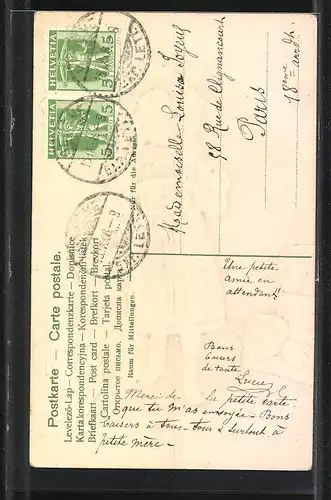 Postkarte. — Carte postale.
Levelező-Lap — Correspondenzkarte — Dopisnice
Karta korespondencyjna — Korespondenční lístek
Briefkaart — Post card — Brefkort — Brevkort
Cartolina postale — Tarjeta postal
Открытое письмо. Дописна карта
Raum für Mitteilungen.
Nur für die Adresse.
HELVETIA
5
5
HELVETIA
5
5
Mademoiselle Louisa
98 Rue de Clignancourt
Paris
18ème
Une petite
amie en
attendant!!
Bons
de tante
Lucie
Merci de la petite carte
que tu m'as envoyée - Bons
baisers à tous - tous & surtout à
petite mère -